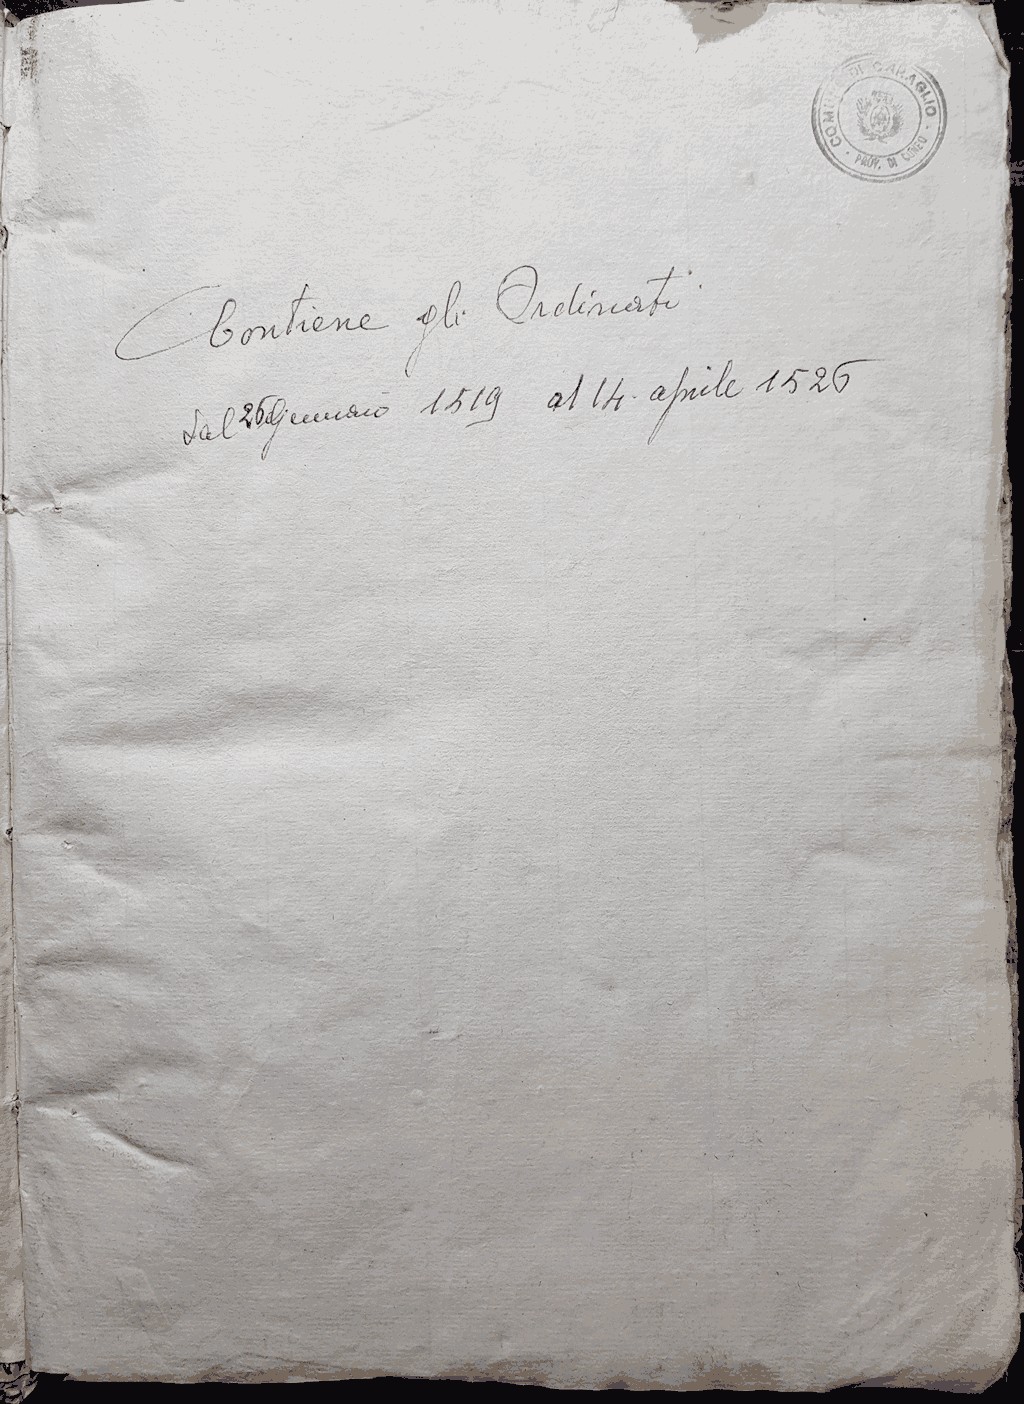 COMUNE DI CARAGLIO
· PROV. DI CUNEO ·
Contiene gli Ordinati
dal 26 Gennaio 1519 al 14. aprile 1526